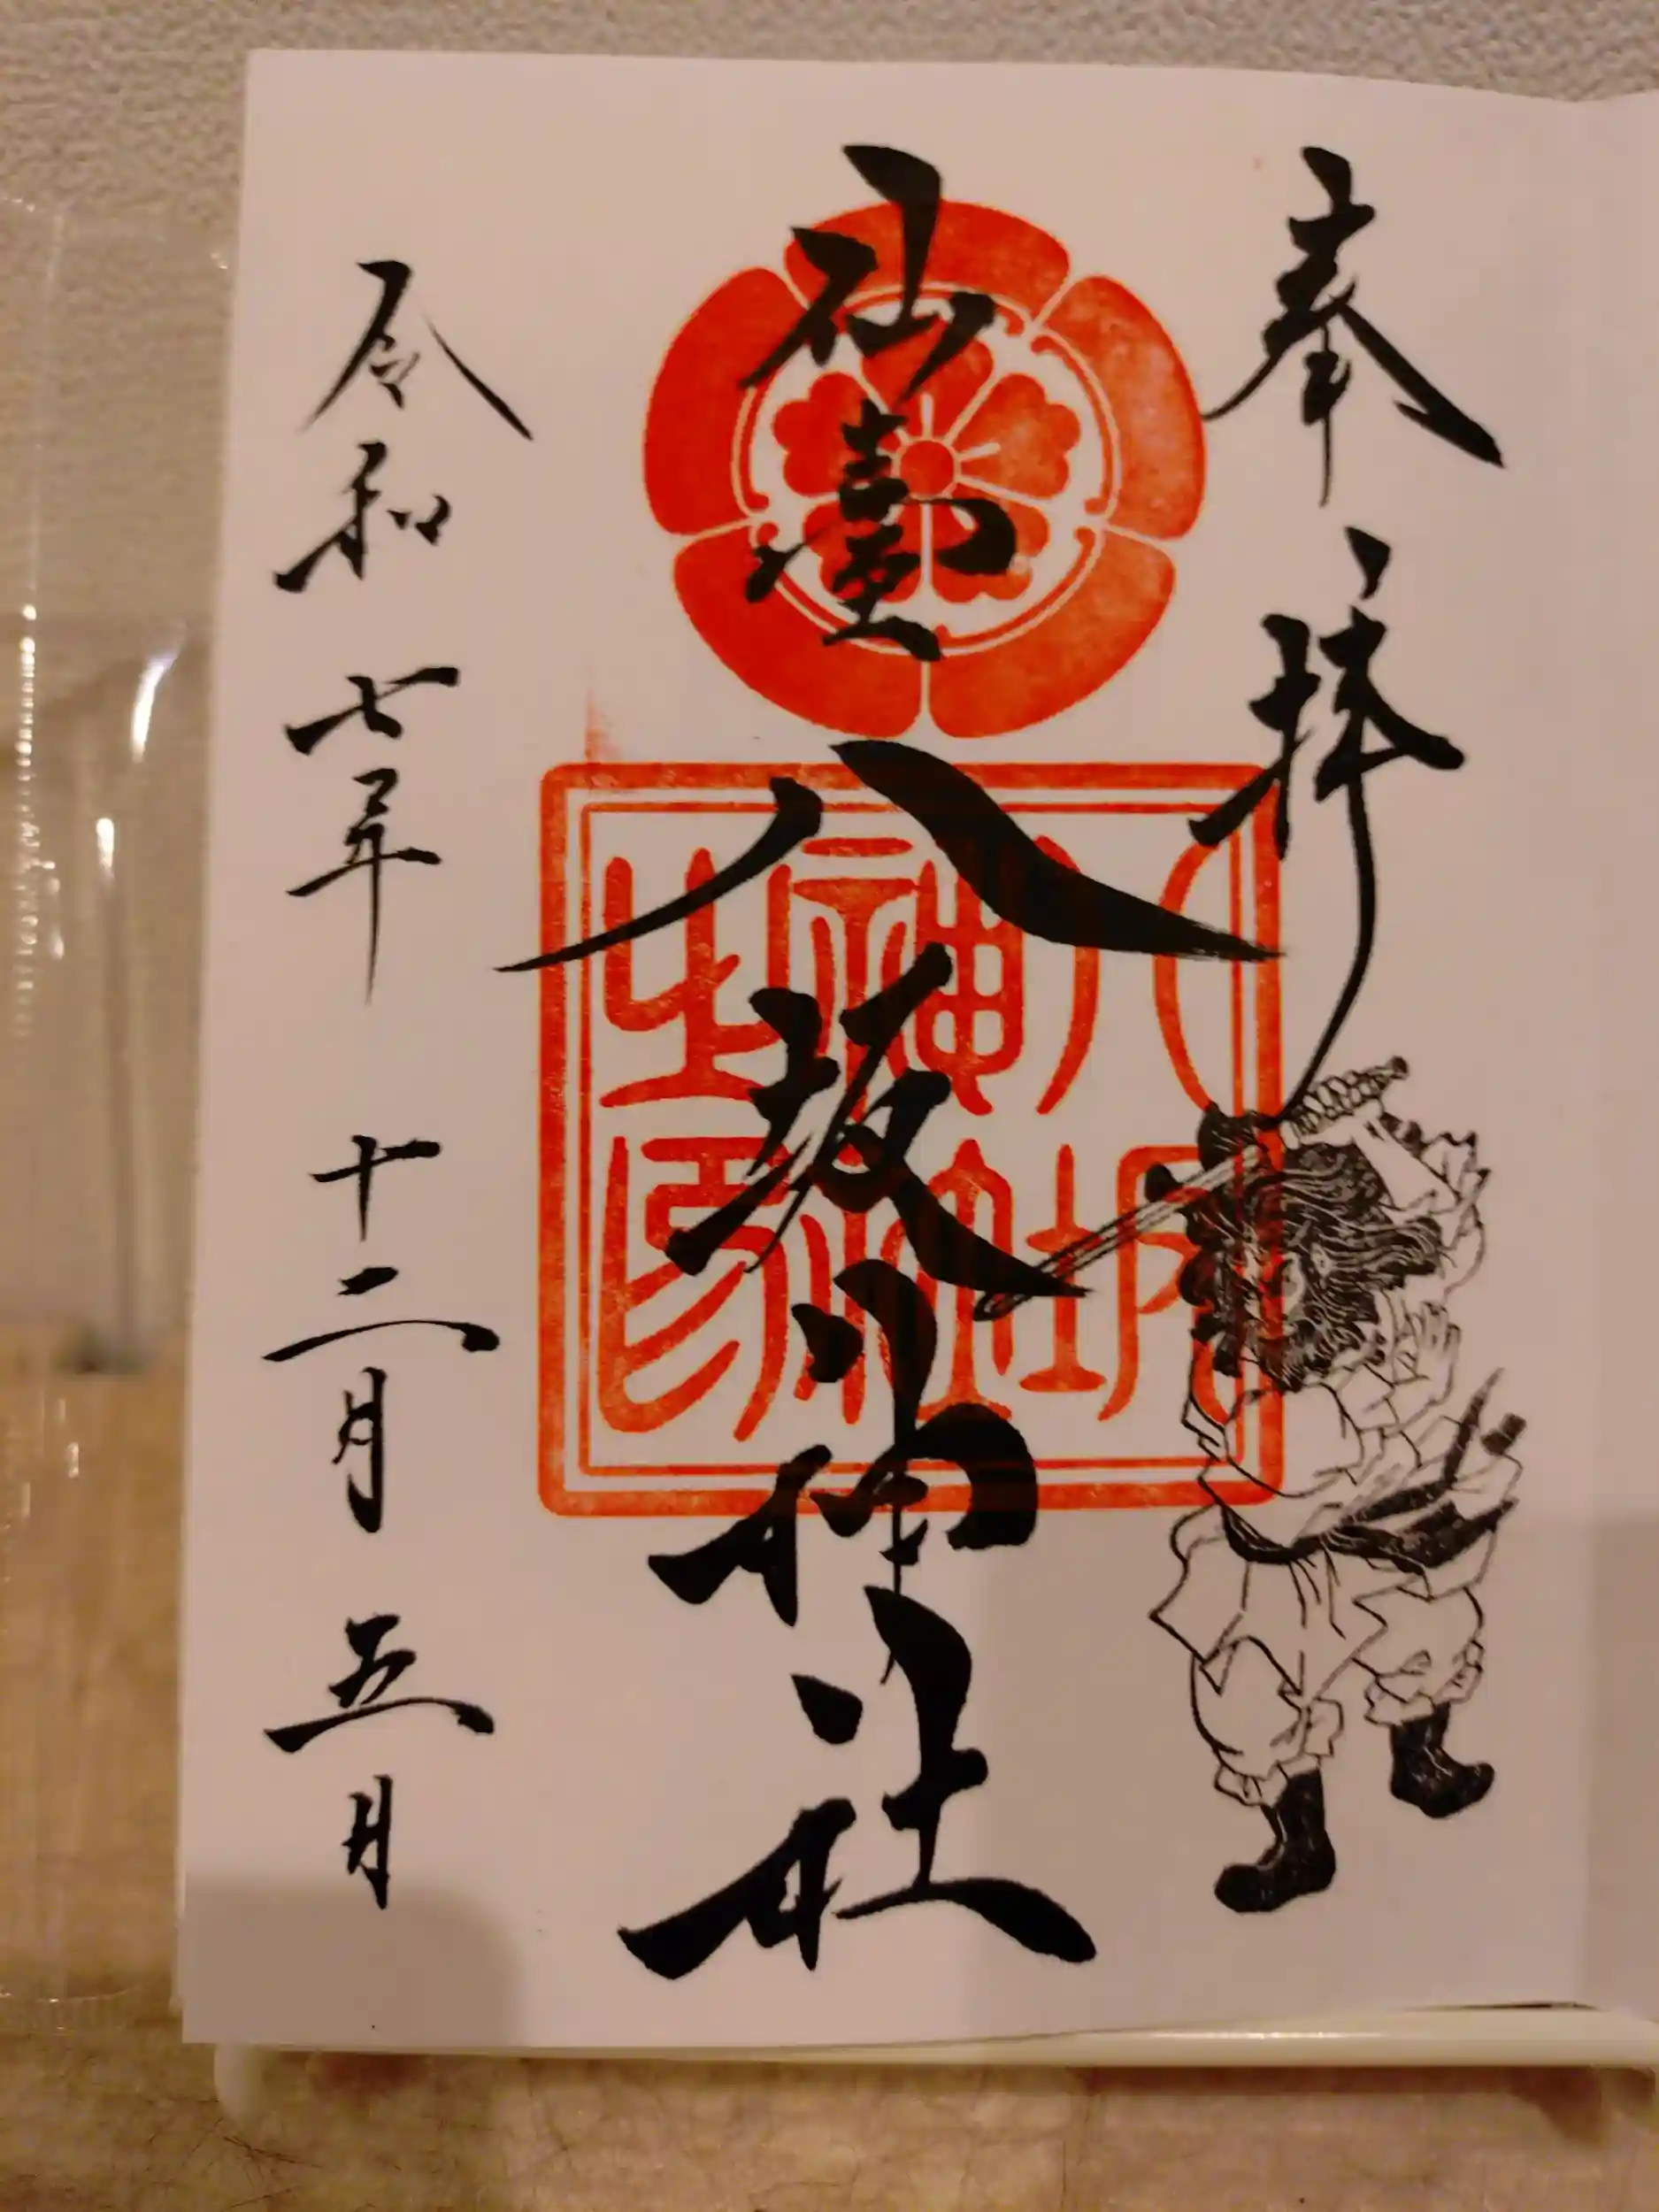 奉拝
仙臺
八坂神社
八坂
神社
之印
令和七年十二月五日